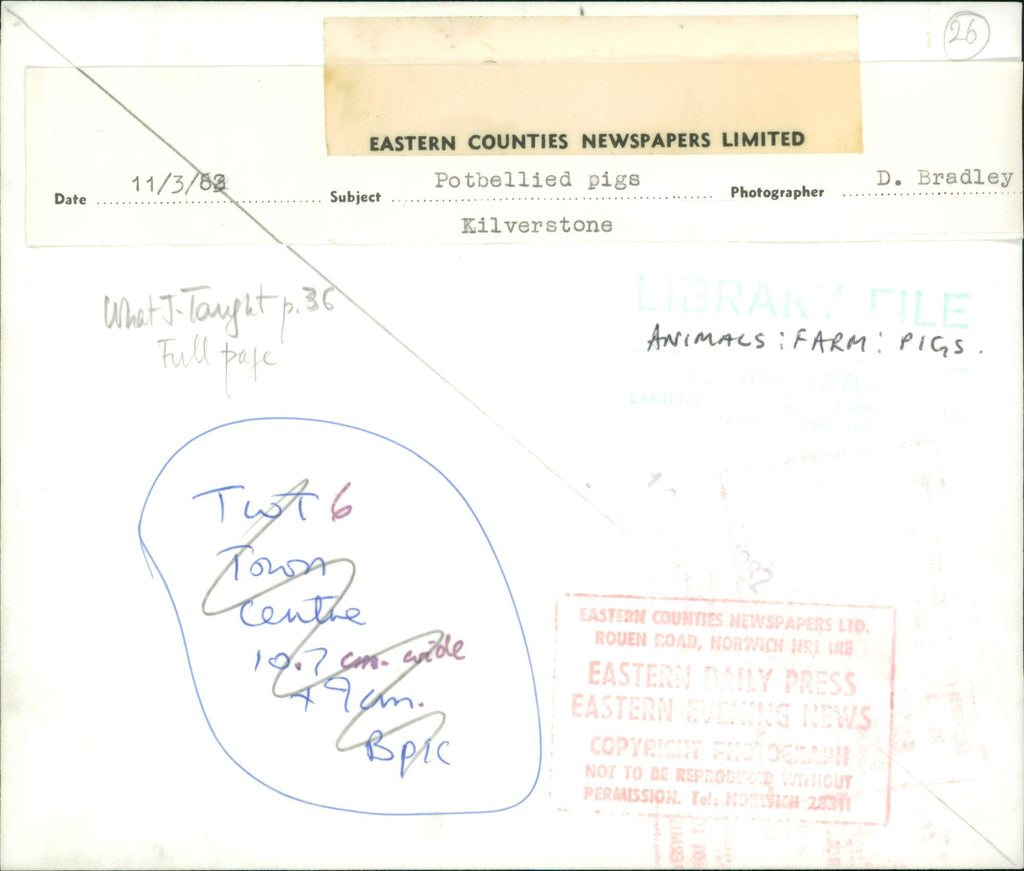 26
EASTERN COUNTIES NEWSPAPERS LIMITED
Date 11/3/82 Subject Potbellied pigs Photographer D. Bradley
Kilverstone
What I Taught p. 36
Full page
LIBRARY FILE
ANIMALS : FARM : PIGS.
EASTERN
TWT 6
Town
Centre
10.7 cm. wide
x 9 cm.
Bpic
EASTERN COUNTIES NEWSPAPERS LTD.
ROUEN ROAD, NORWICH NR1 1RE
EASTERN DAILY PRESS
EASTERN EVENING NEWS
COPYRIGHT PHOTOGRAPH
NOT TO BE REPRODUCED WITHOUT
PERMISSION. Tel: NORWICH 28311